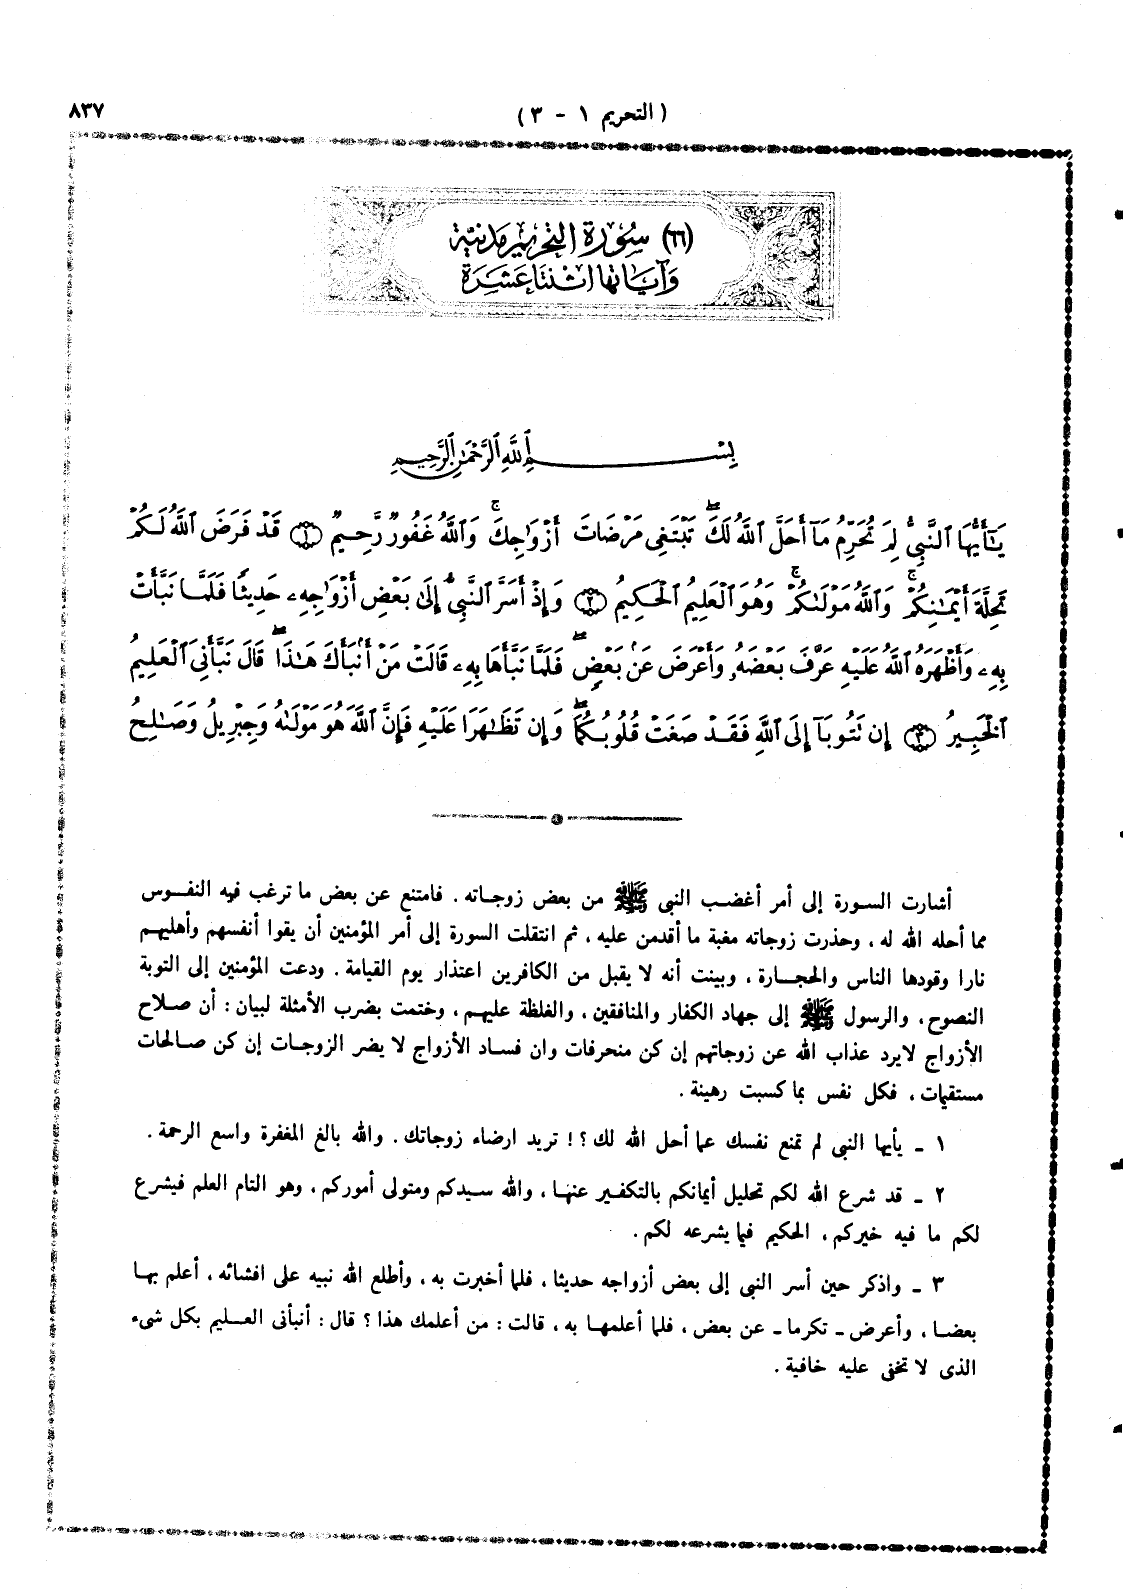 ( التحريم ١ - ٣ )
٨٣٧
(٦٦) سُورَة التحريم مدنية
وَآيَاتها اثنتَا عَشَرَة
بِسْمِ ٱللَّهِ ٱلرَّحْمَٰنِ ٱلرَّحِيمِ
يَٰٓأَيُّهَا ٱلنَّبِيُّ لِمَ تُحَرِّمُ مَآ أَحَلَّ ٱللَّهُ لَكَۖ تَبْتَغِى مَرْضَاتَ أَزْوَٰجِكَۚ وَٱللَّهُ غَفُورٌ رَّحِيمٌ ۝١ قَدْ فَرَضَ ٱللَّهُ لَكُمْ
تَحِلَّةَ أَيْمَٰنِكُمْۚ وَٱللَّهُ مَوْلَىٰكُمْۚ وَهُوَ ٱلْعَلِيمُ ٱلْحَكِيمُ ۝٢ وَإِذْ أَسَرَّ ٱلنَّبِىُّ إِلَىٰ بَعْضِ أَزْوَٰجِهِۦ حَدِيثًا فَلَمَّا نَبَّأَتْ
بِهِۦ وَأَظْهَرَهُ ٱللَّهُ عَلَيْهِ عَرَّفَ بَعْضَهُۥ وَأَعْرَضَ عَنۢ بَعْضٍۖ فَلَمَّا نَبَّأَهَا بِهِۦ قَالَتْ مَنْ أَنۢبَأَكَ هَٰذَاۖ قَالَ نَبَّأَنِىَ ٱلْعَلِيمُ
ٱلْخَبِيرُ ۝٣ إِن تَتُوبَآ إِلَى ٱللَّهِ فَقَدْ صَغَتْ قُلُوبُكُمَاۖ وَإِن تَظَٰهَرَا عَلَيْهِ فَإِنَّ ٱللَّهَ هُوَ مَوْلَىٰهُ وَجِبْرِيلُ وَصَٰلِحُ
أشارت السورة إلى أمر أغضب النبى ﷺ من بعض زوجاته . فامتنع عن بعض ما ترغب فيه النفوس
مما أحله الله له ، وحذرت زوجاته مغبة ما أقدمن عليه ، ثم انتقلت السورة إلى أمر المؤمنين أن يقوا أنفسهم وأهليهم
نارا وقودها الناس والحجارة ، وبينت أنه لا يقبل من الكافرين اعتذار يوم القيامة . ودعت المؤمنين إلى التوبة
النصوح ، والرسول ﷺ إلى جهاد الكفار والمنافقين ، والغلظة عليهم ، وختمت بضرب الأمثلة لبيان : أن صلاح
الأزواج لايرد عذاب الله عن زوجاتهم إن كن منحرفات وان فساد الأزواج لا يضر الزوجات إن كن صالحات
مستقيمات ، فكل نفس بما كسبت رهينة .
١ - يأيها النبى لم تمنع نفسك عما أحل الله لك ؟ ! تريد ارضاء زوجاتك . والله بالغ المغفرة واسع الرحمة .
٢ - قد شرع الله لكم تحليل أيمانكم بالتكفير عنها ، والله سيدكم ومتولى أموركم ، وهو التام العلم فيشرع
لكم ما فيه خيركم ، الحكيم فيما يشرعه لكم .
٣ - واذكر حين أسر النبى إلى بعض أزواجه حديثا ، فلما أخبرت به ، وأطلع الله نبيه على افشائه ، أعلم بها
بعضا ، وأعرض - تكرما - عن بعض ، فلما أعلمها به ، قالت : من أعلمك هذا ؟ قال : أنبأنى العليم بكل شىء
الذى لا تخفى عليه خافية .